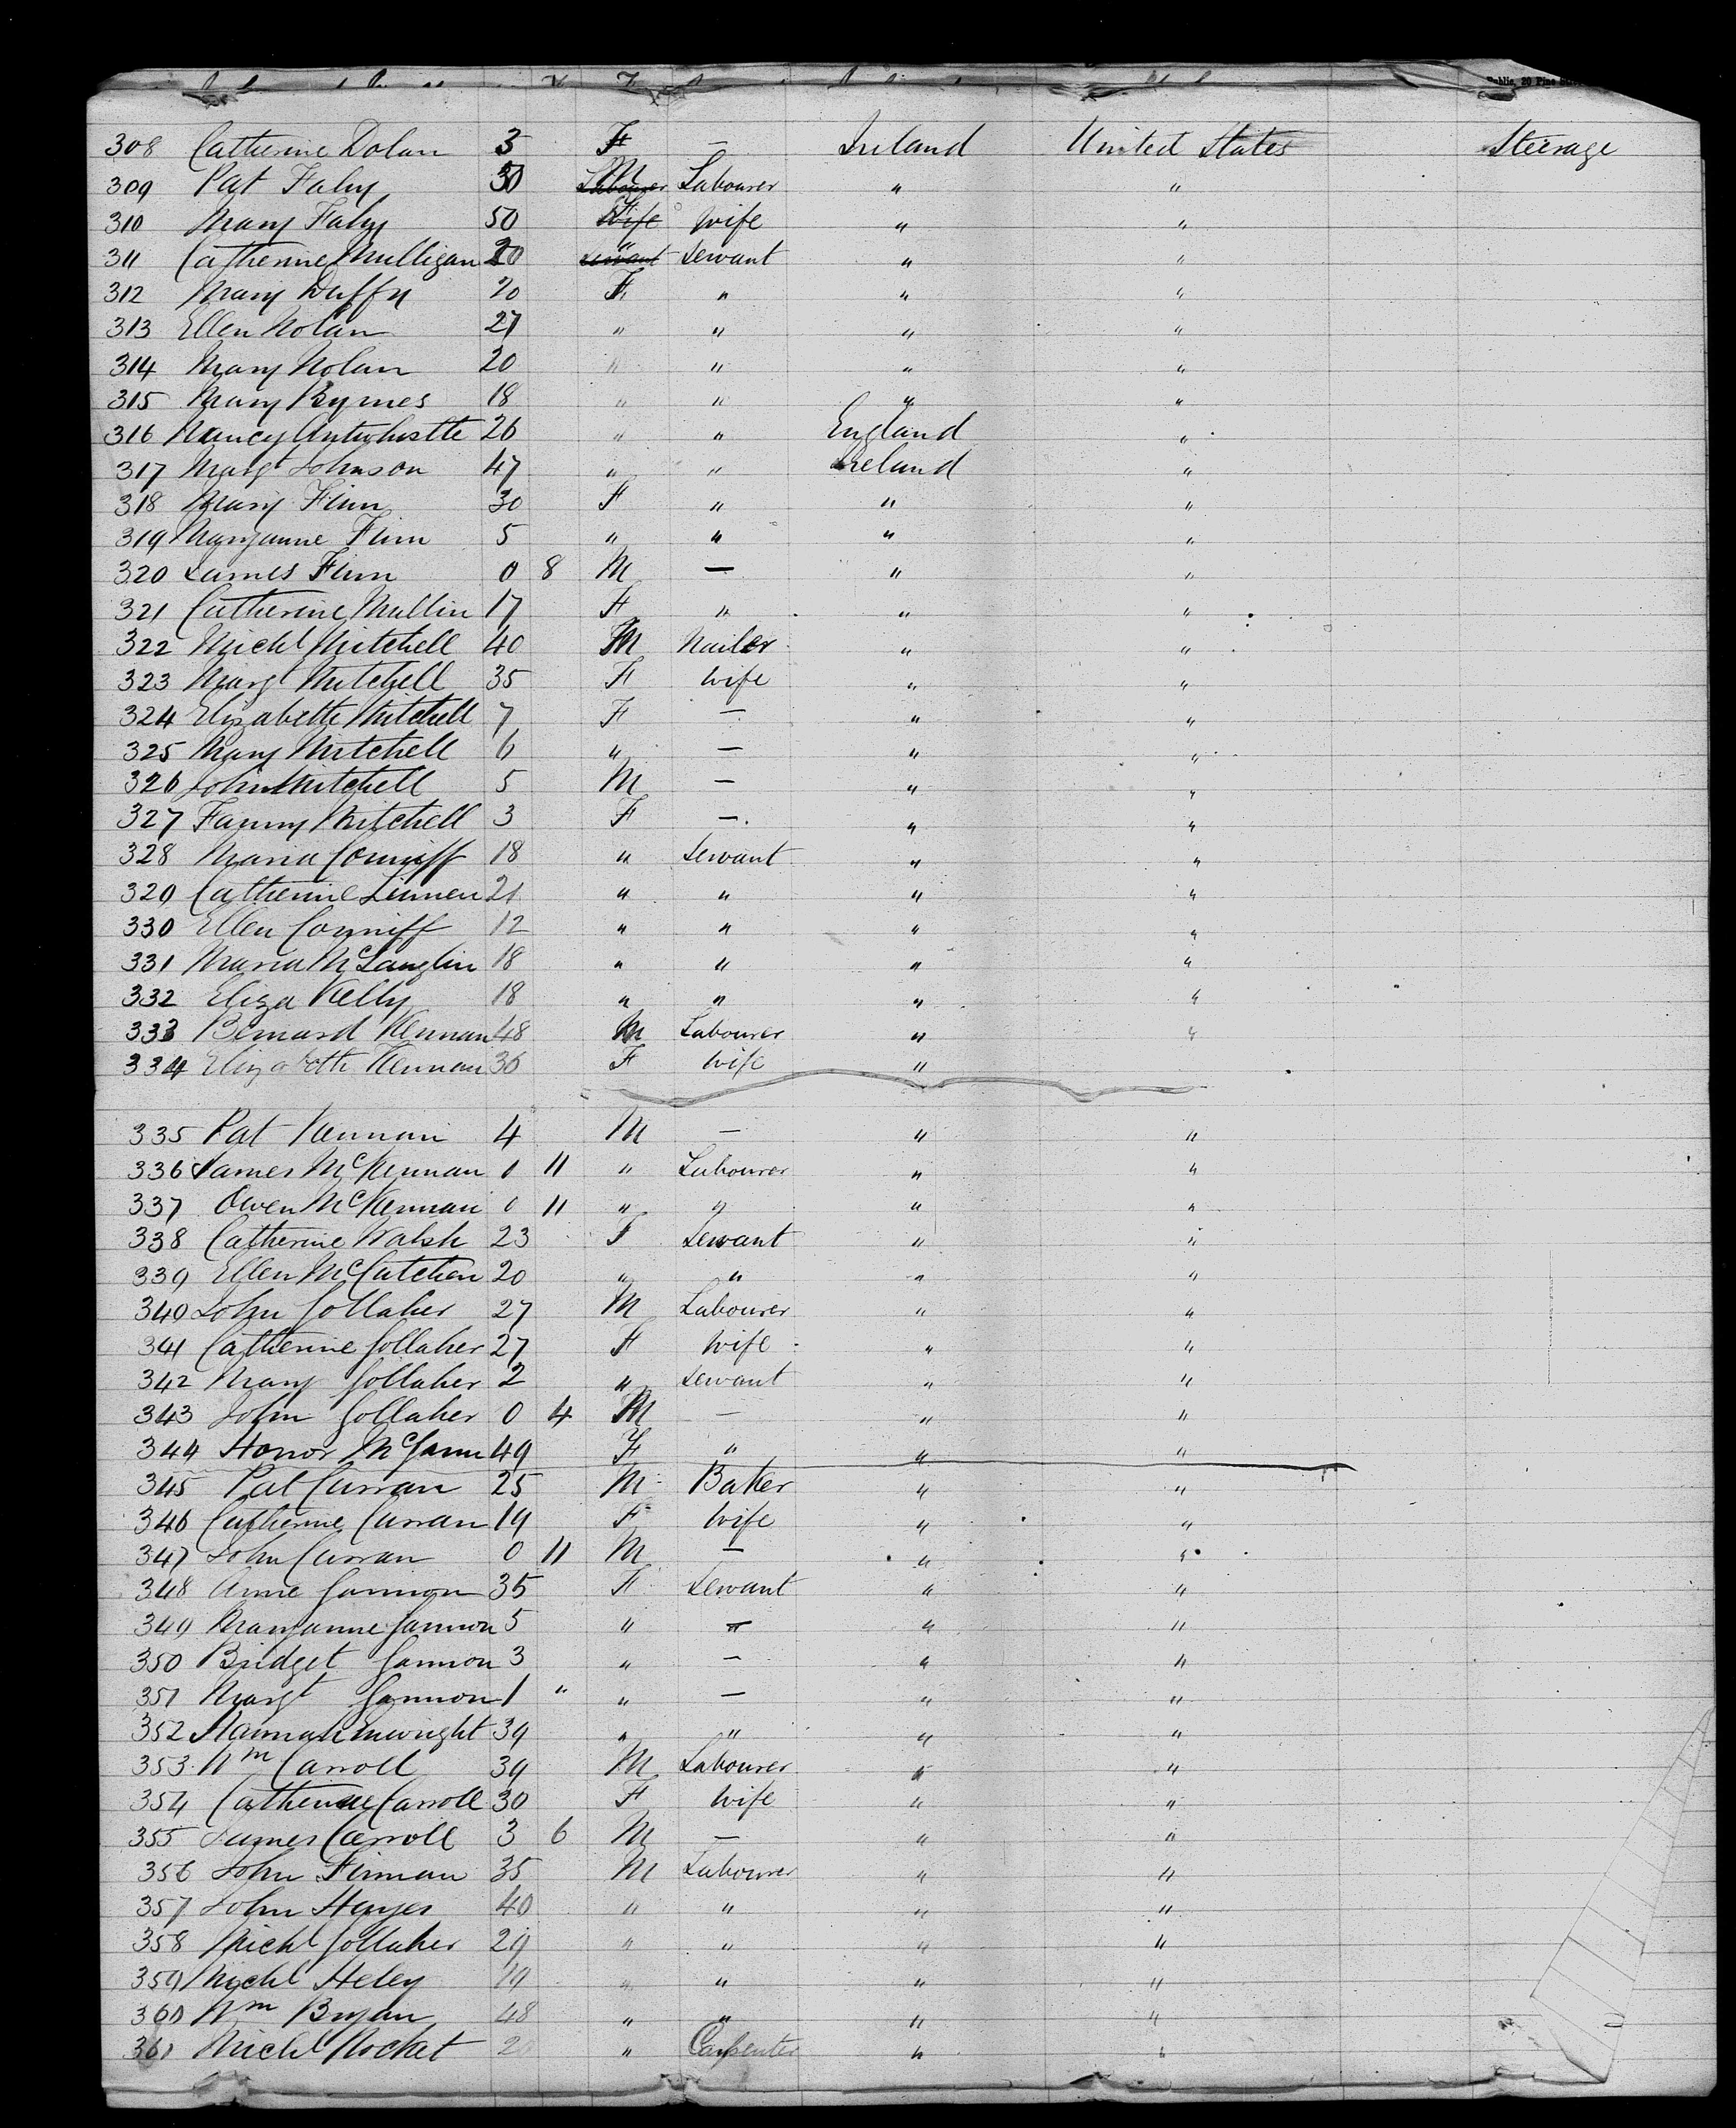 Public, 20 Pine
308 Catherine Dolan 3 F — Ireland United States Steerage
309 Pat Fahy 30 M Labourer " "
310 Mary Fahy 50 F wife " "
311 Catherine Mulligan 20 " Servant " "
312 Mary Duffy 20 F " " "
313 Ellen Nolan 27 " " " "
314 Mary Nolan 20 " " " "
315 Mary Byrnes 18 " " " "
316 Nancy Antwhistle 26 " " England "
317 Margt Johnson 47 " " Ireland "
318 Mary Finn 30 F " " "
319 Maryanne Finn 5 " " " "
320 James Finn 0 8 M — " "
321 Catherine Mullin 17 F " " "
322 Michl Mitchell 40 M Nailer " "
323 Margt Mitchell 35 F wife " "
324 Elizabeth Mitchell 7 F — " "
325 Mary Mitchell 6 " — " "
326 John Mitchell 5 M — " "
327 Fanny Mitchell 3 F — " "
328 Maria Conniff 18 " Servant " "
329 Catherine Linnen 21 " " " "
330 Ellen Conniff 12 " " " "
331 Maria McLauglin 18 " " " "
332 Eliza Kelly 18 " " " "
333 Bernard Kennan 48 M Labourer " "
334 Elizabeth Kennan 36 F wife "
335 Pat Kennan 4 M — " "
336 James McKennan 1 11 " Labourer " "
337 Owen McKennan 0 11 " " " "
338 Catherine Walsh 23 F Servant " "
339 Ellen McCutchen 20 " " " "
340 John Gollaher 27 M Labourer " "
341 Catherine Gollaher 27 F wife " "
342 Mary Gollaher 2 " Servant " "
343 John Gollaher 0 4 M — " "
344 Honor McGann 49 F " " "
345 Pat Curran 25 M Baker " "
346 Catherine Curran 19 F wife " "
347 John Curran 0 11 M — " "
348 Anne Gannon 35 F Servant " "
349 Maryanne Gannon 5 " — " "
350 Bridget Gannon 3 " — " "
351 Margt Gannon 1 " " — " "
352 Hannah Enwright 39 " " " "
353 Wm Carroll 39 M Labourer " "
354 Catherine Carroll 30 F wife " "
355 James Carroll 3 6 M — " "
356 John Firman 35 M Labourer " "
357 John Hayes 40 " " " "
358 Michl Gollaher 29 " " " "
359 Michl Heley 19 " " " "
360 Wm Bryan 48 " " " "
361 Michl Rocket 20 " Carpenter " "